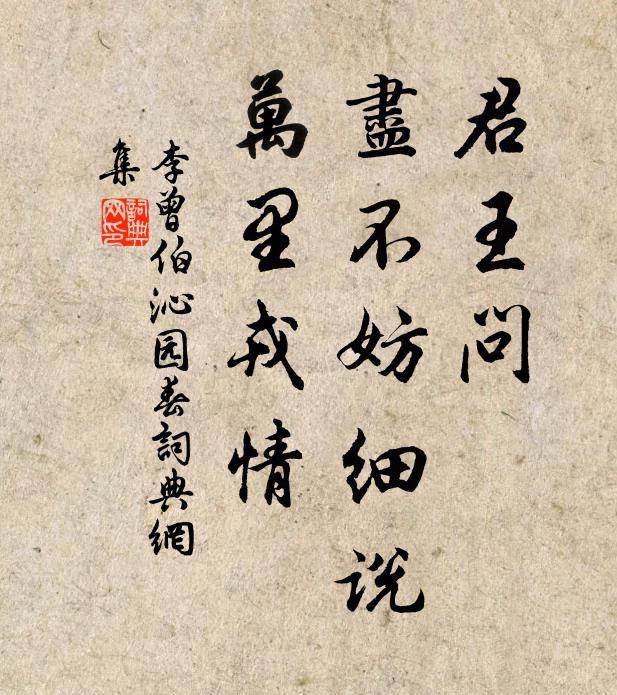 君王问
盡不妨细说
萬里戎情
李曾伯沁园春詞典網
集
詞典
网印